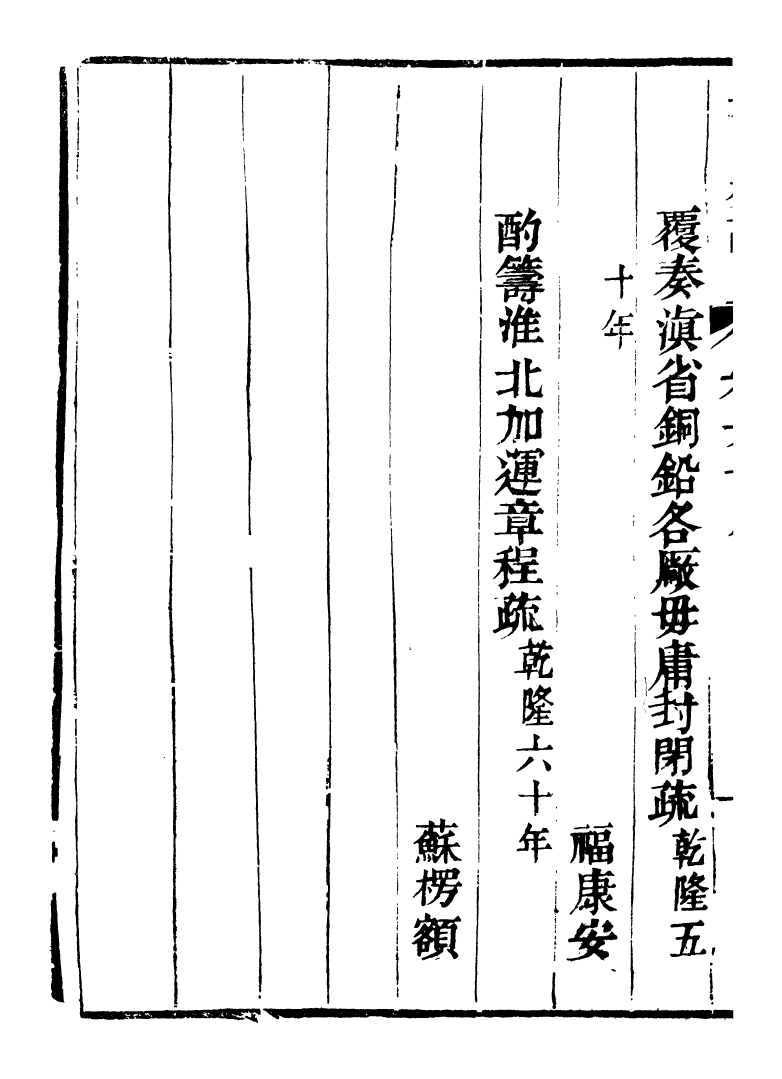 覆奏滇省銅鉛各廠毋庸封閉疏乾隆五
十年
福康安
酌籌淮北加運章程疏乾隆六十年
蘇楞額